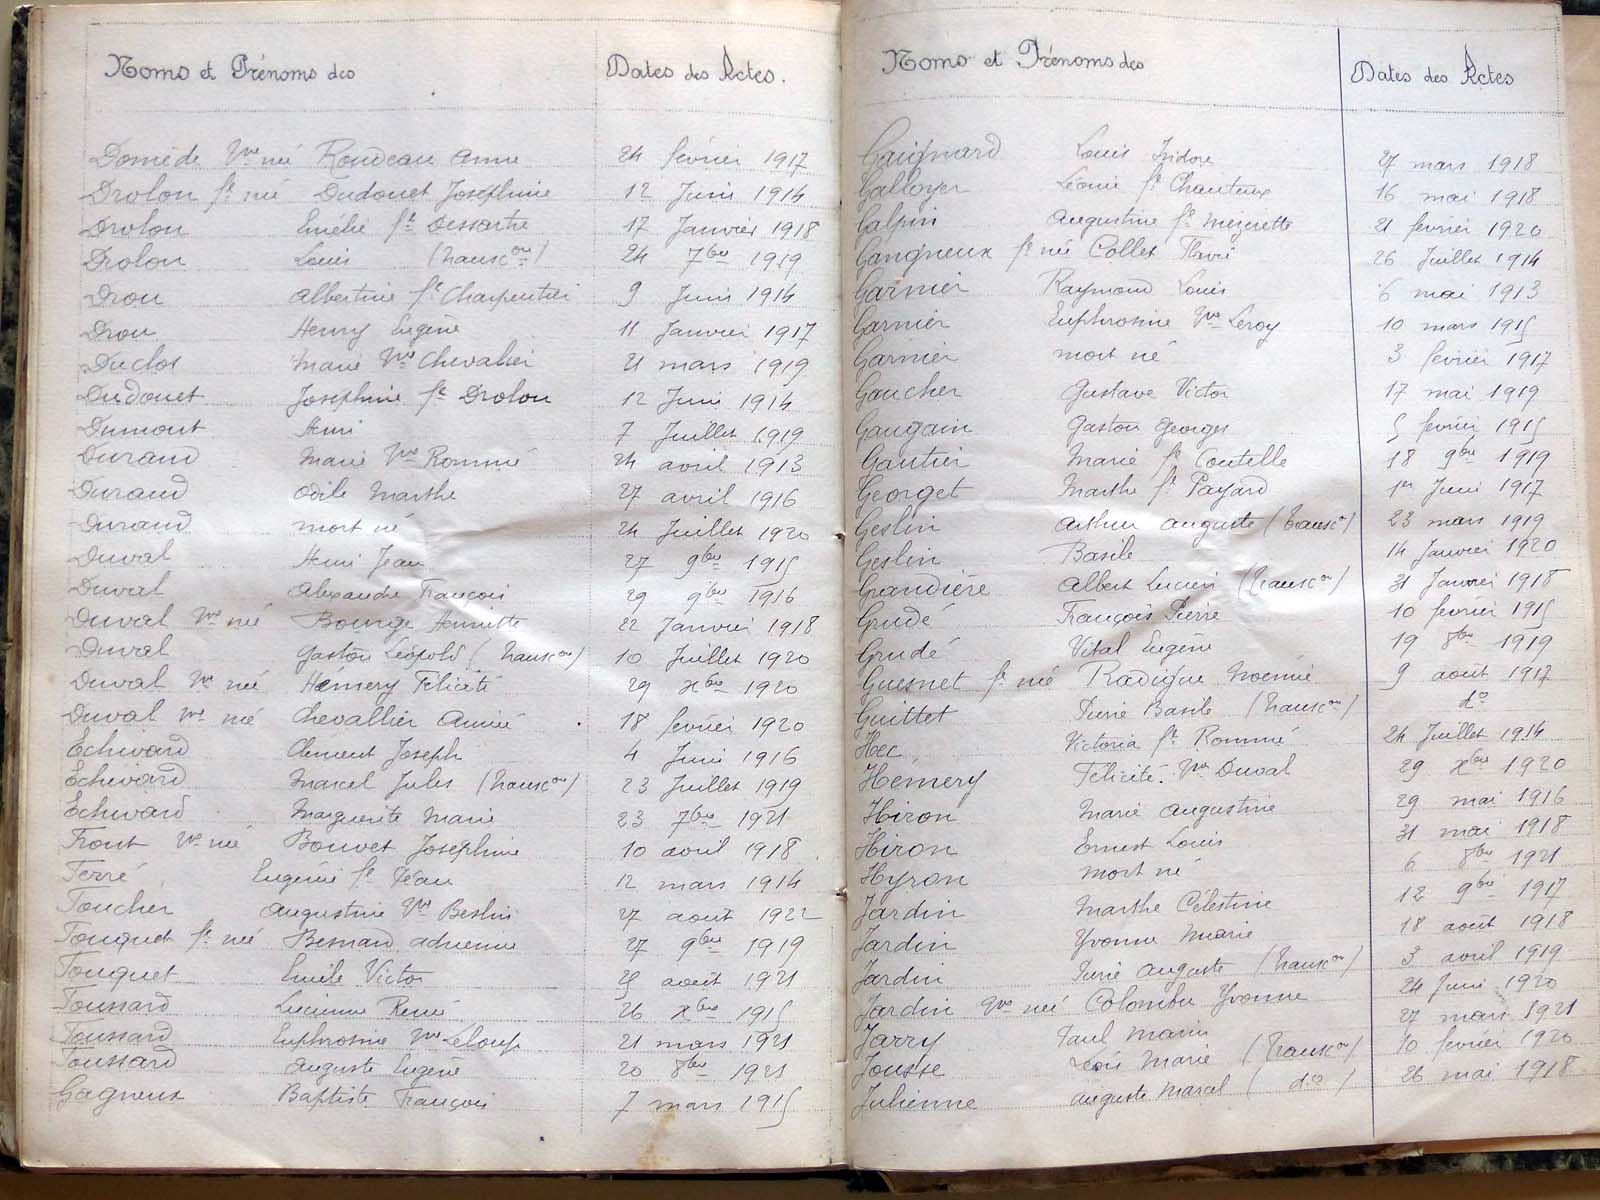 Noms et Prénoms des Dates des Actes.
Domède Vve née Rondeau Anne 24 février 1917
Drolon fe née Dudouet Joséphine 12 Juin 1914
Drolon Emélie fe Dessartre 17 Janvier 1918
Drolon Louis (transcon) 24 7bre 1919
Drou Albertine fe Charpentier 9 Juin 1914
Drou Henry Eugène 11 Janvier 1917
Duclos Marie Vve Chevalier 21 mars 1919
Dudouet Joséphine fe Drolon 12 Juin 1914
Dumont Henri 7 Juillet 1919
Durand Marie Vve Rommé 24 avril 1913
Durand Odile Marthe 27 avril 1916
Durand mort né 24 Juillet 1920
Duval Henri Jean 27 9bre 1915
Duval Alexandre François 29 9bre 1916
Duval Vve née Bourge Henriette 22 Janvier 1918
Duval Gaston Léopold (transcon) 10 Juillet 1920
Duval Vve née Hemery Félicité 29 xbre 1920
Duval Vve née Chevallier Aimée 18 février 1920
Echivard Clément Joseph 4 Juin 1916
Echivard Marcel Jules (transcon) 23 Juillet 1919
Echivard Marguerite Marie 23 7bre 1921
Front Vve née Bouvet Joséphine 10 avril 1918
Ferré Eugénie fe 12 mars 1914
Foucher Augustine Vve Beslin 27 août 1922
Fouquet fe née Besnard Adrienne 27 9bre 1919
Fouquet Emile Victor août 1921
Foussard Lucienne Renée 26 xbre 1915
Foussard Euphrosine Vve Leloup 21 mars 1921
Foussard Auguste Eugène 20 8bre 1921
Gagneux Baptiste François 7 mars 1915
Noms et Prénoms des Dates des Actes
Gaignard Louis Isidore 27 mars 1918
Galloyer Léonie fe Chanteux 16 mai 1918
Galpin Augustine fe Mézerette 21 février 1920
Gangneux fe née Collet Flavie 26 Juillet 1914
Garnier Raymond Louis 6 mai 1913
Garnier Euphrosine Vve Leroy 10 mars 1915
Garnier mort né 3 février 1917
Gaucher Gustave Victor 17 mai 1919
Gaugain Gaston Georges 5 février 1915
Gautier Marie fe Coutelle 18 9bre 1919
Georget Marthe fe Payard 1er Juin 1917
Geslin Arthur Auguste (transcon) 23 mars 1919
Geslin Basile 14 Janvier 1920
Grandière Albert Lucien (transcon) 31 Janvier 1918
Grudé François Pierre 10 février 1915
Grudé Vital Eugène 19 8bre 1919
Guesnet fe née Radigue Noémie 9 août 1917
Guittet Pierre Basile (transcon) do
Hec Victoria fe Rommé 24 Juillet 1914
Hémery Félicité Vve Duval 29 xbre 1920
Hiron Marie Augustine 29 mai 1916
Hiron Ernest Louis 31 mai 1918
Hyron mort né 6 8bre 1921
Jardin Marthe Célestine 12 9bre 1917
Jardin Yvonne Marie 18 août 1918
Jardin Pierre Auguste (transcon) 3 avril 1919
Jardin Vve née Colombu Yvonne 24 Juin 1920
Jarry Paul Marin 27 mars 1921
Jousse Léon Marie (transcon) 10 février 1920
Julienne Auguste Marcel (do) 26 mai 1918